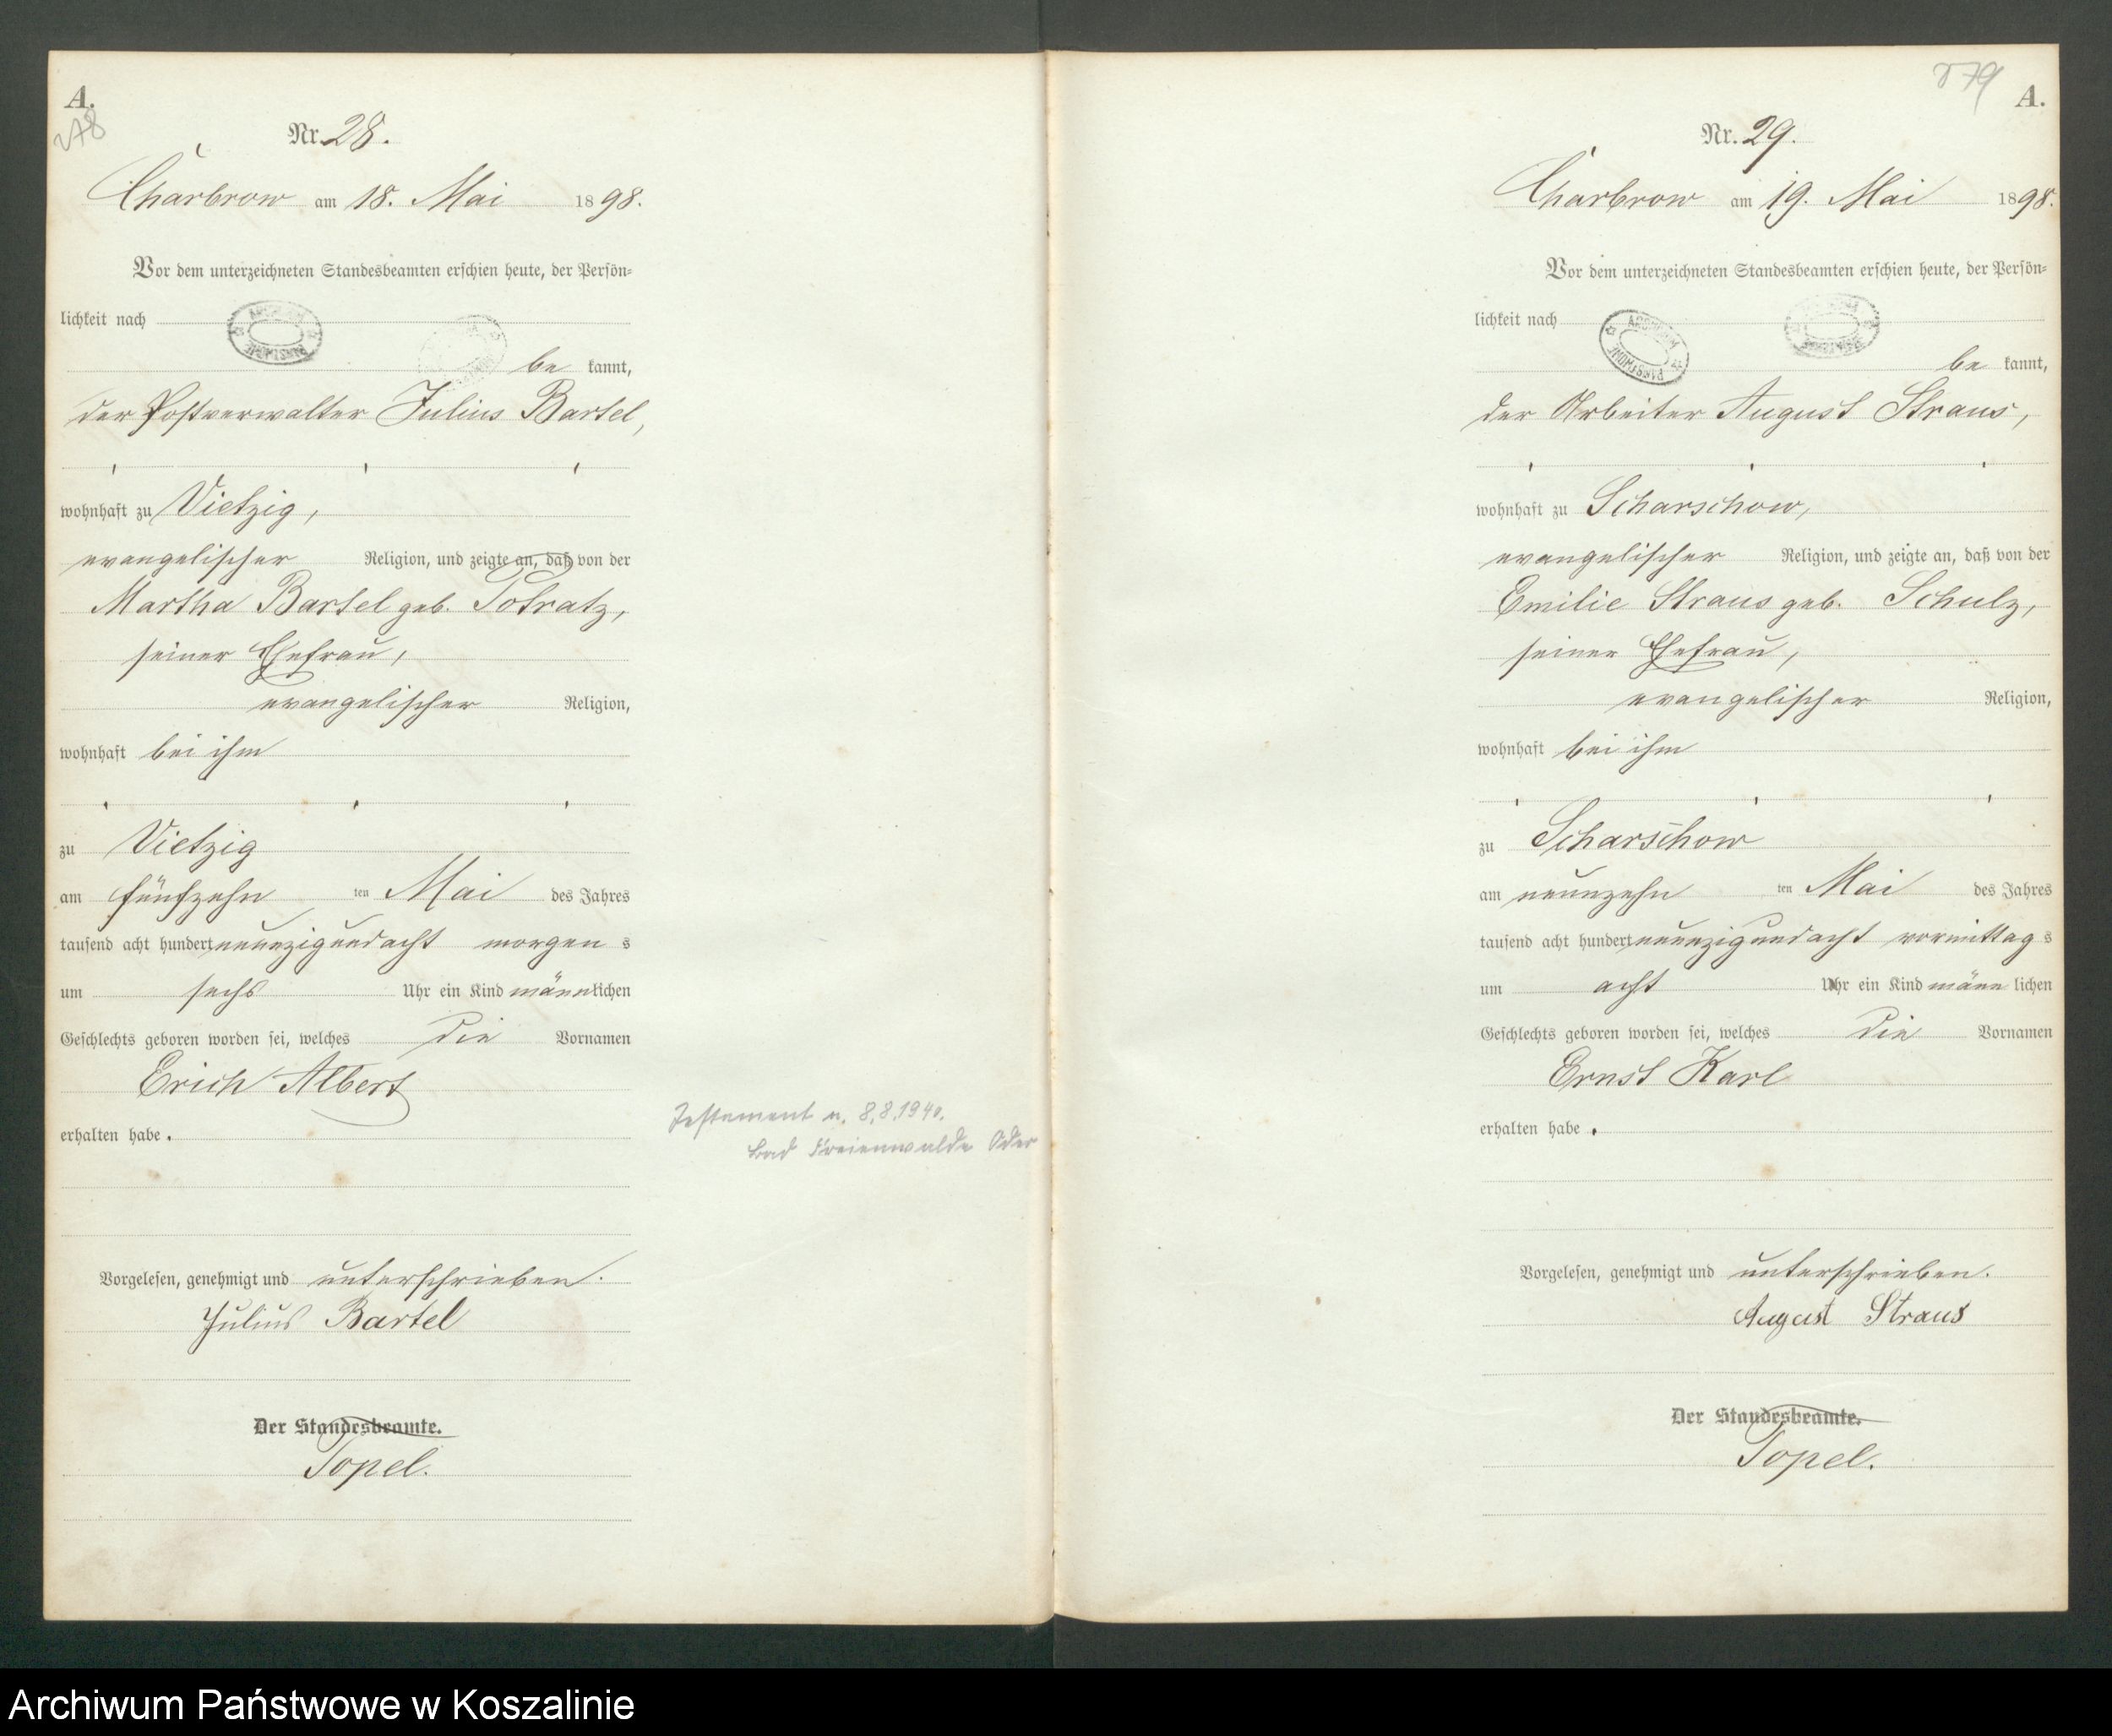 A.
278
Nr. 28.
Charbrow am 18. Mai 1898.
Vor dem unterzeichneten Standesbeamten erschien heute, der Persön-
lichkeit nach
be kannt,
der Postverwalter Julius Bartel,
wohnhaft zu Vietzig,
evangelischer Religion, und zeigte an, daß von der
Martha Bartel geb. Potratz,
seiner Ehefrau,
evangelischer Religion,
wohnhaft bei ihm
zu Vietzig
am fünfzehn ten Mai des Jahres
tausend acht hundert neunzig und acht morgen s
um sechs Uhr ein Kind männlichen
Geschlechts geboren worden sei, welches die Vornamen
Erich Albert
erhalten habe.
Testament v. 8.8.1940.
Bad Freienwalde Oder
Vorgelesen, genehmigt und unterschrieben.
Julius Bartel
Der Standesbeamte.
Topel.
879
A.
Nr. 29.
Charbrow am 19. Mai 1898.
Vor dem unterzeichneten Standesbeamten erschien heute, der Persön-
lichkeit nach
be kannt,
der Arbeiter August Straus,
wohnhaft zu Scharschow,
evangelischer Religion, und zeigte an, daß von der
Emilie Straus geb. Schulz,
seiner Ehefrau,
evangelischer Religion,
wohnhaft bei ihm
zu Scharschow
am neunzehn ten Mai des Jahres
tausend acht hundert neunzig und acht vormittag s
um acht Uhr ein Kind männ lichen
Geschlechts geboren worden sei, welches die Vornamen
Ernst Karl
erhalten habe.
Vorgelesen, genehmigt und unterschrieben.
August Straus
Der Standesbeamte.
Topel.
Archiwum Państwowe w Koszalinie